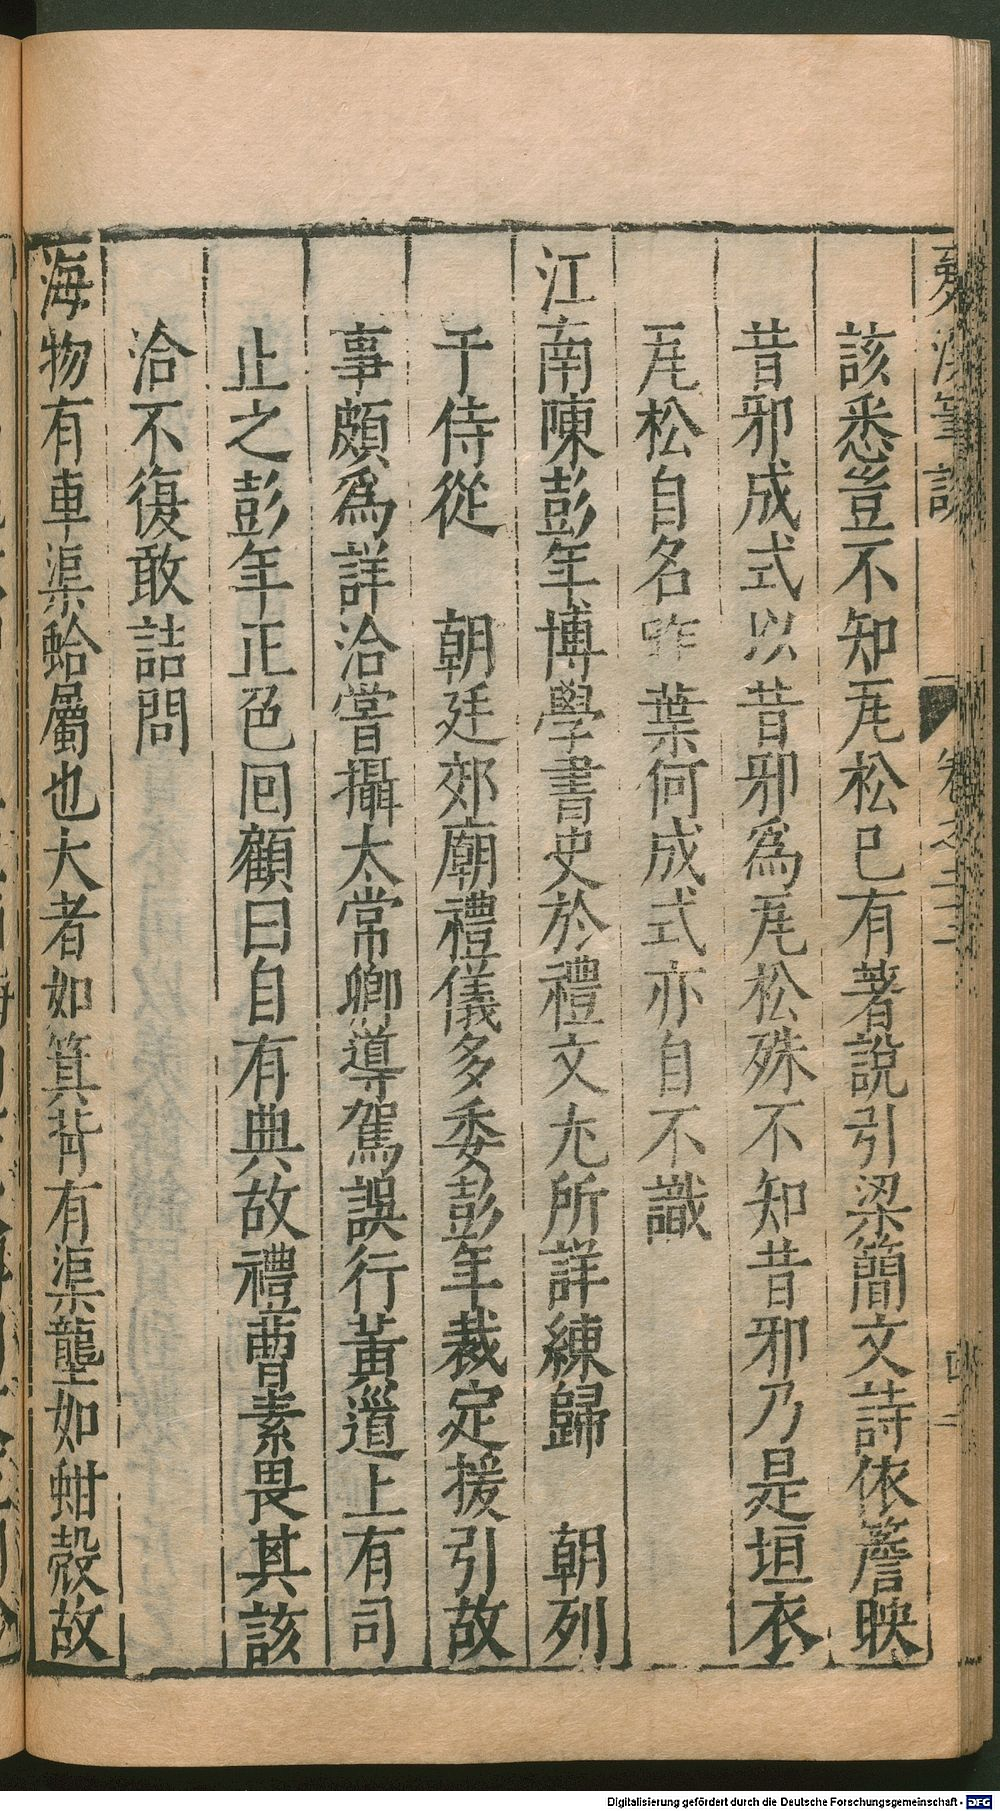 夢溪筆談 卷之二十二 四
該悉豈不知瓦松已有著說引梁簡文詩依簷映
昔邪成式以昔邪爲瓦松殊不知昔邪乃是垣衣
瓦松自名昨葉何成式亦自不識
江南陳彭年博學書史於禮文尤所詳練歸 朝列
于侍從 朝廷郊廟禮儀多委彭年裁定援引故
事頗爲詳洽嘗攝太常卿導駕誤行黃道上有司
止之彭年正色回顧曰自有典故禮曹素畏其該
洽不復敢詰問
海物有車渠蛤屬也大者如箕背有渠壟如蚶殼故
Digitalisierung gefördert durch die Deutsche Forschungsgemeinschaft - DFG